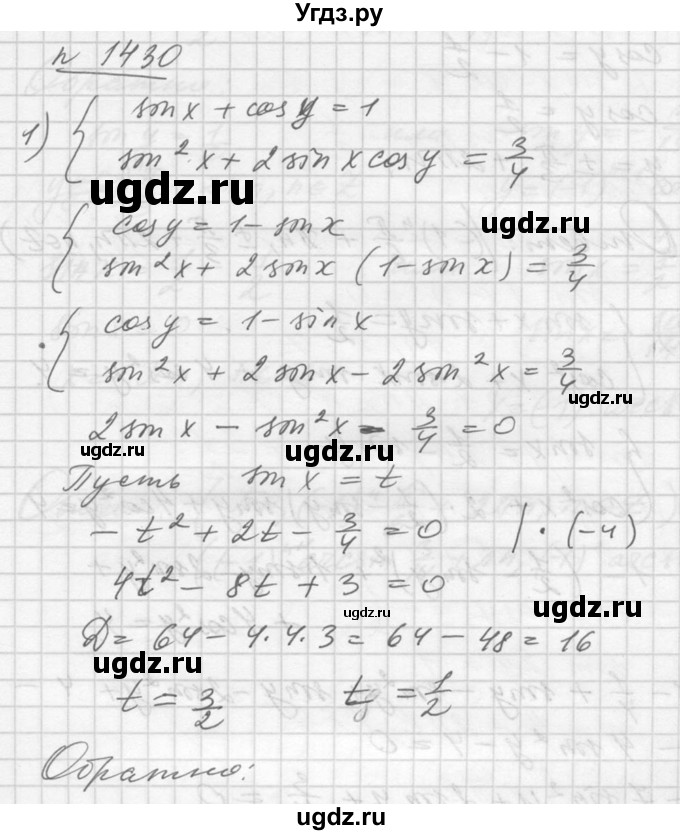 Угдз.ру
n 1430
1) { sin x + cos y = 1
sin² x + 2 sin x cos y = 3/4
ugdz.ru
ugdz.ru
{ cos y = 1 - sin x
sin² x + 2 sin x (1 - sin x) = 3/4
{ cos y = 1 - sin x
sin² x + 2 sin x - 2 sin² x = 3/4
ugdz.ru
2 sin x - sin² x - 3/4 = 0
ugdz.ru
ugdz.ru
Пусть sin x = t
- t² + 2t - 3/4 = 0 | · (-4)
4t² - 8t + 3 = 0
ugdz.ru
ugdz.ru
D = 64 - 4·4·3 = 64 - 48 = 16
ugdz.ru
t = 3/2 t = 1/2
Обратно:
ugdz.ru
ugdz.ru